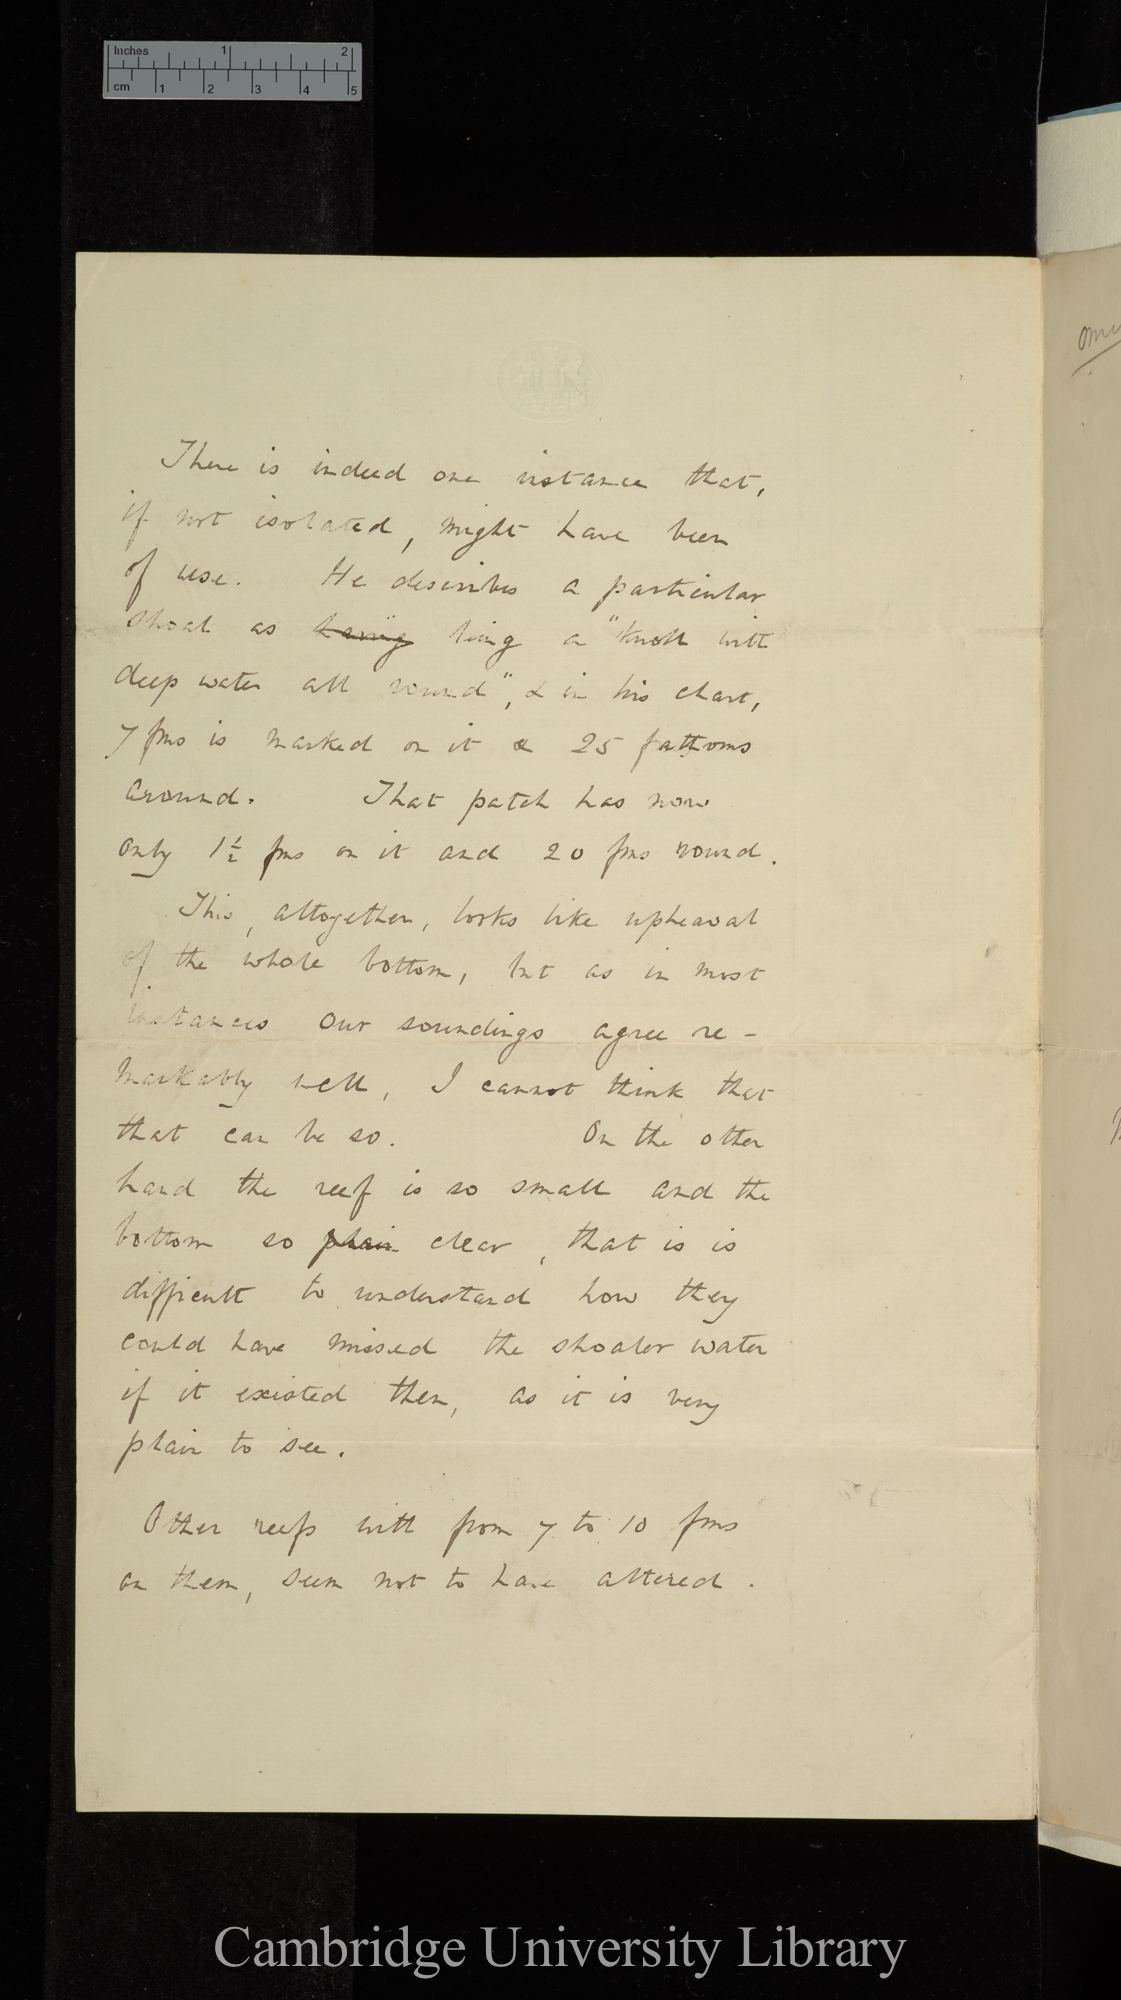 Inches 1 2
cm 1 2 3 4 5
There is indeed one instance that,
if not isolated, might have been
of use. He describes a particular
shoal as having being a "knoll with
deep water all round", & in his chart,
7 fms is marked on it & 25 fathoms
around. That patch has now
only 1½ fms on it and 20 fms round.
This, altogether, looks like upheaval
of the whole bottom, but as in most
instances our soundings agree re-
markably well, I cannot think that
that can be so. On the other
hand the reef is so small and the
bottom so plain clear, that is is
difficult to understand how they
could have missed the shoaler water
if it existed then, as it is very
plain to see.
Other reefs with from 7 to 10 fms
on them, seem not to have altered.
Cambridge University Library